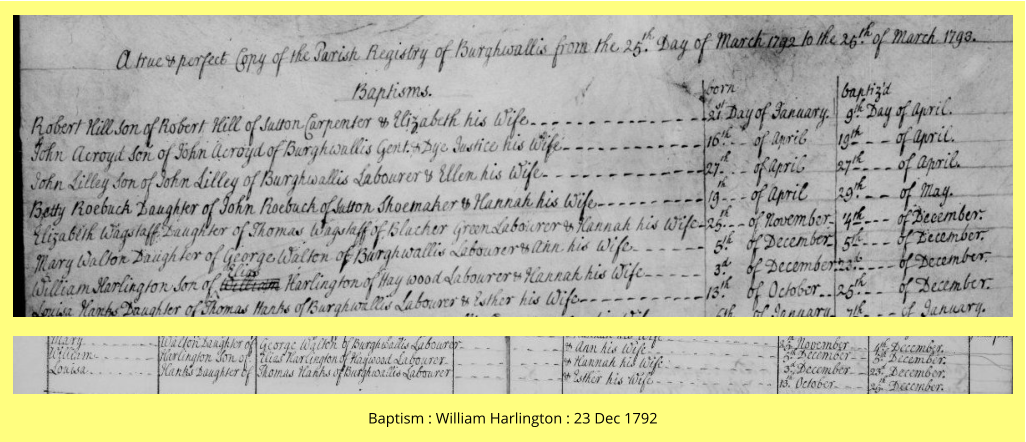 A true & perfect Copy of the Parish Registry of Burghwallis from the 25th Day of March 1792 to the 25th of March 1793.
Baptisms. born baptiz'd
Robert Hill Son of Robert Hill of Sutton Carpenter & Elizabeth his Wife 21st Day of January. 9th Day of April.
John Acroyd Son of John Acroyd of Burghwallis Gent. & Dye Justice his Wife 16th of April 19th of April.
John Lilley Son of John Lilley of Burghwallis Labourer & Ellen his Wife 27th of April 27th of April.
Betty Roebuck Daughter of John Roebuck of Sutton Shoemaker & Hannah his Wife 19th of April 29th of May.
Elizabeth Wagstaff Daughter of Thomas Wagstaff of Blacher Green Labourer & Hannah his Wife 25th of November 4th of December.
Mary Walton Daughter of George Walton of Burghwallis Labourer & Ann his Wife 5th of December 5th of December.
Elias
William Harlington Son of William Harlington of Haywood Labourer & Hannah his Wife 3d of December 23d of December.
Louisa Hanks Daughter of Thomas Hanks of Burghwallis Labourer & Esther his Wife 13th of October 25th of December.
6th of January 7th of January.
Mary Walton Daughter of George Walton of Burghwallis Labourer & Ann his Wife 5th December 5th December.
William Harlington Son of Elias Harlington of Hagwood Labourer & Hannah his Wife 3d December 23d December.
Louisa Hanks Daughter of Thomas Hanks of Burghwallis Labourer & Esther his Wife 13th October 25th December.
Baptism : William Harlington : 23 Dec 1792